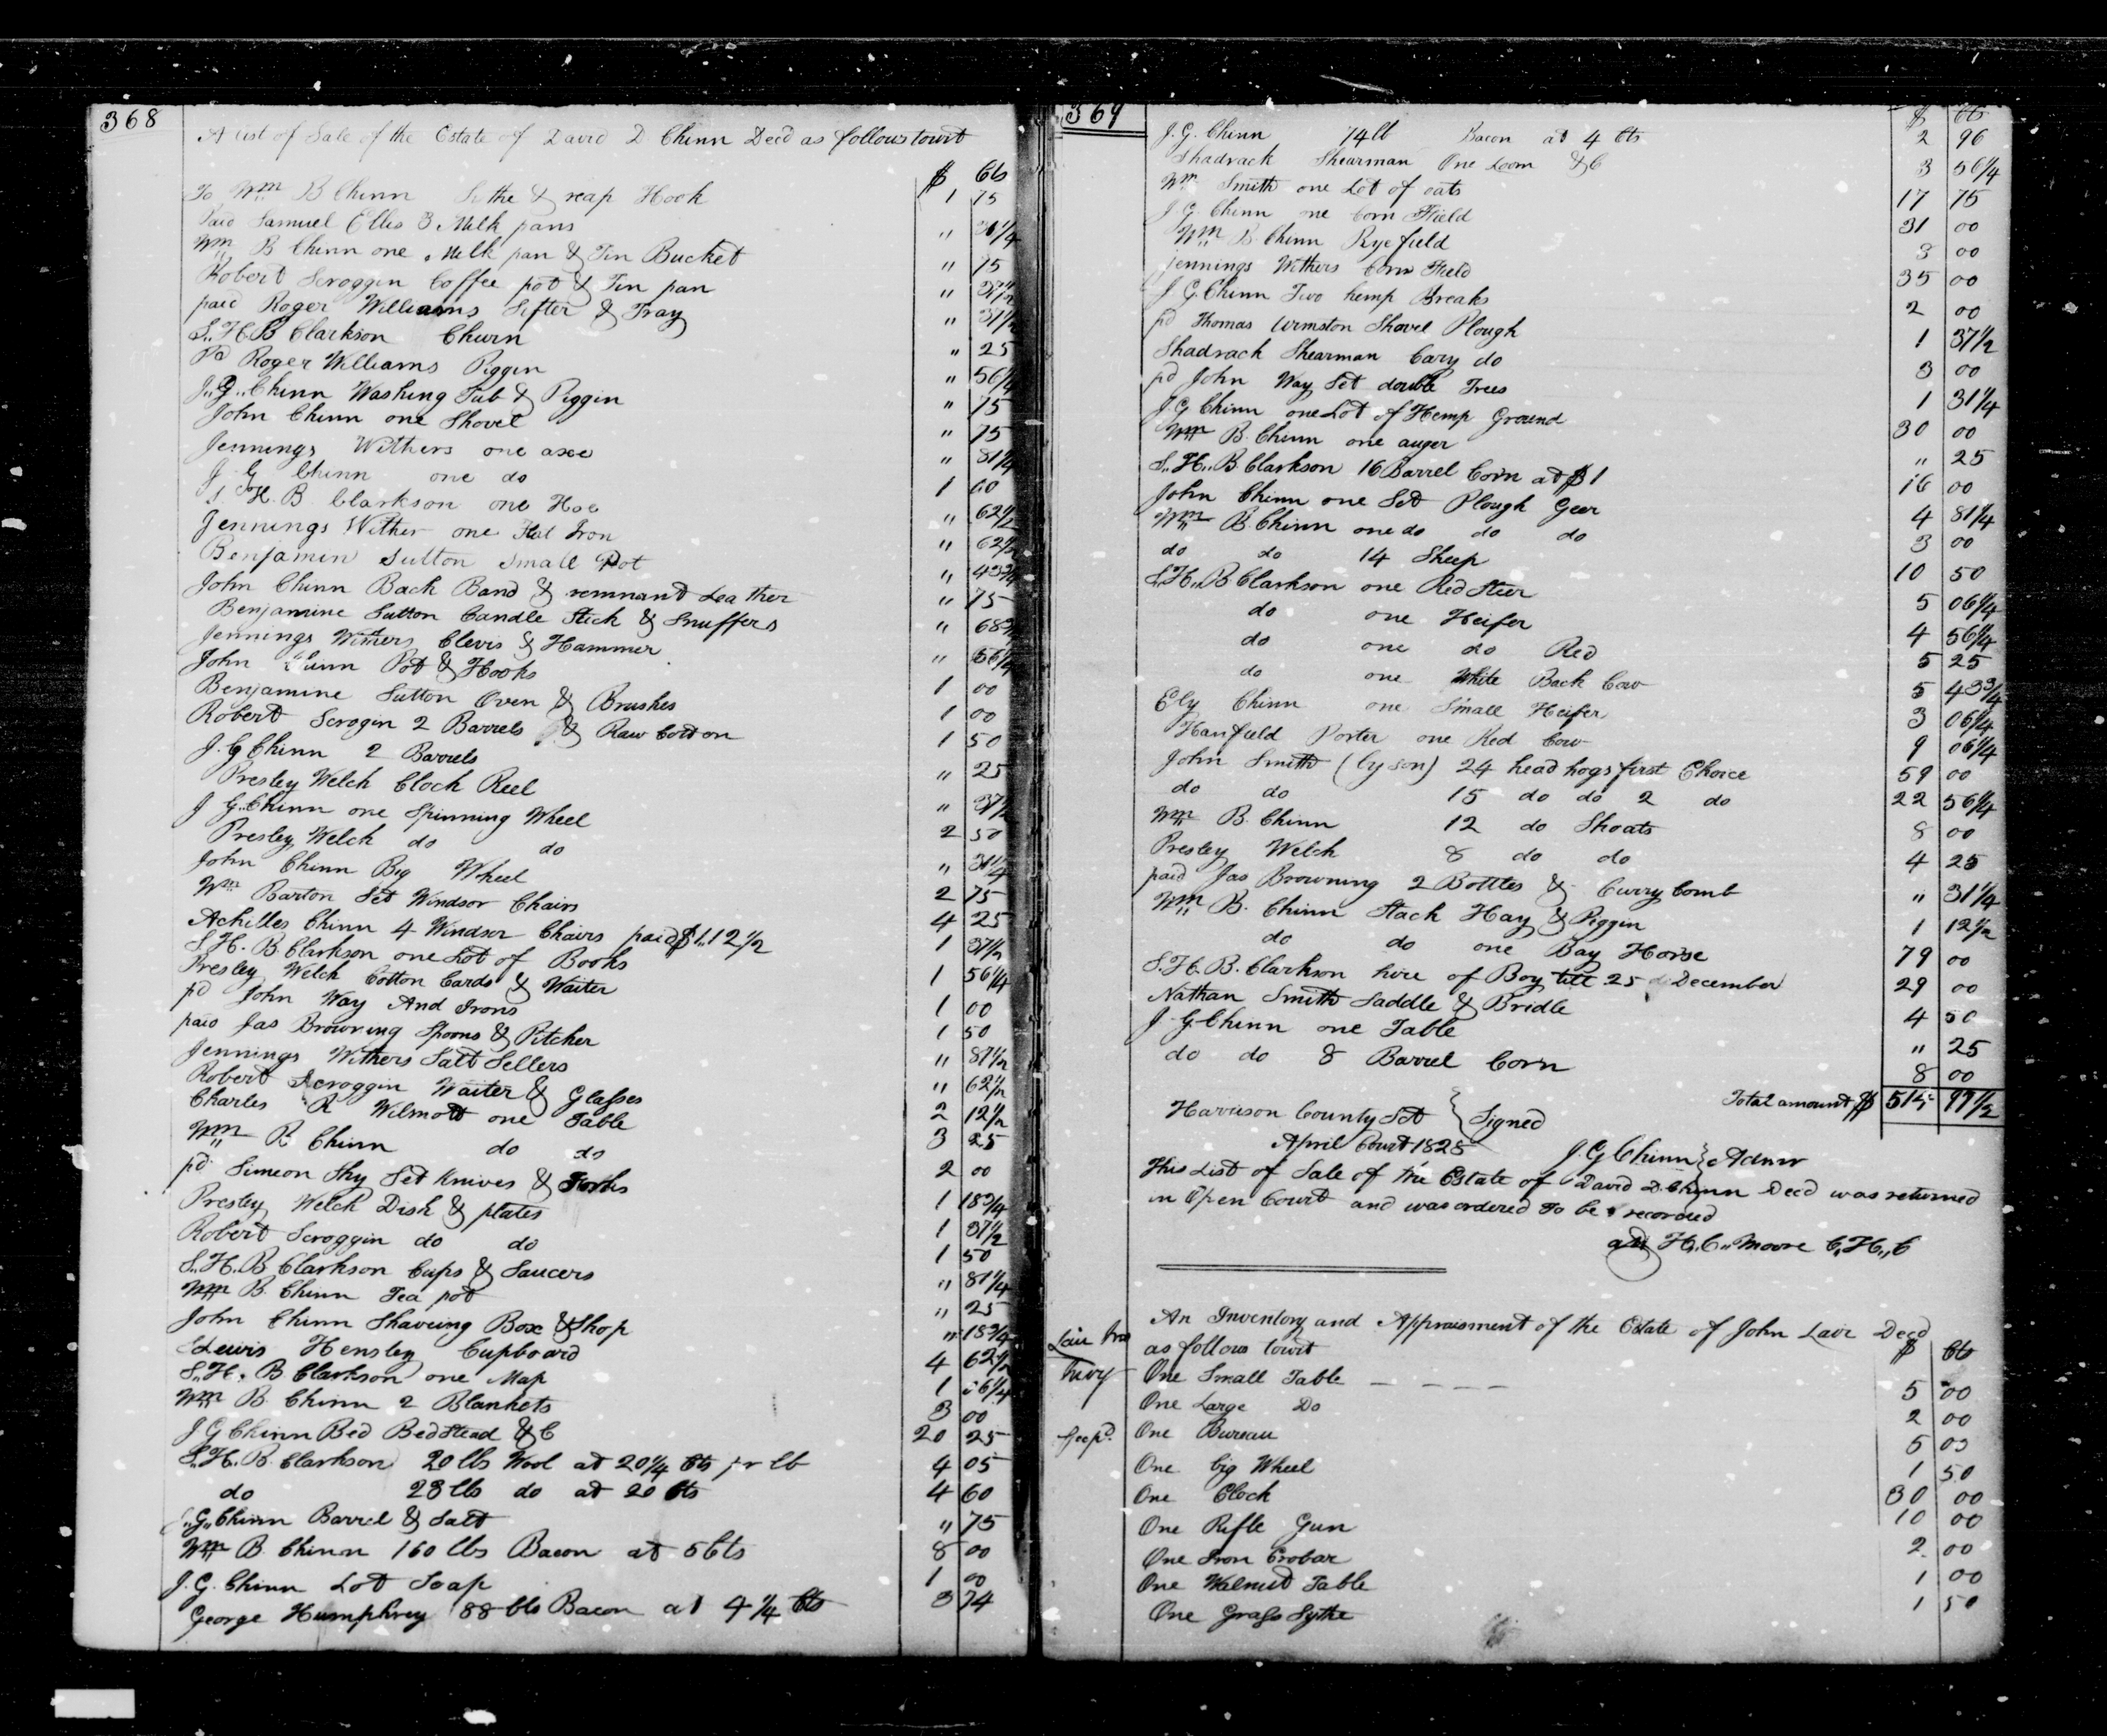 368
A list of Sale of the Estate of David D Chinn Decd as follows towit
$ Cts
To Wm B Chinn Sithe & reap Hook 1 75
Paid Samuel Ellis 3 Milk pans " 31 1/4
Wm B Chinn one Milk pan & Tin Bucket " 75
Robert Scroggin Coffee pot & Tin pan " 37 1/2
paid Roger Williams Sifter & Tray " 31 1/2
S.. H. B Clarkson Churn " 25
Pd Roger Williams Piggin " 56 1/4
J.. G.. Chinn Washing Tub & Piggin " 75
John Chinn one Shovel " 75
Jennings Withers one axe " 81 1/4
J G Chinn one do 1 60
S H. B Clarkson one Hoe " 62 1/2
Jennings Wither one Flat Iron " 62 1/2
Benjamin Sutton Small Pot " 43 3/4
John Chinn Back Band & remnant Leather " 75
Benjamine Sutton Candle Stick & Snuffers " 68 3/4
Jennings Withers Clevis & Hammer " 56 1/4
John Chinn Pot & Hooks 1 00
Benjamine Sutton Oven & Brushes 1 00
Robert Scrogin 2 Barrels & Raw Cotton 1 50
J. G Chinn 2 Barrels " 25
Presley Welch Clock Reel " 37 1/2
J G.. Chinn one Spinning Wheel 2 50
Presley Welch do do " 31 1/4
John Chinn Big Wheel 2 75
Wm Barton Set Windsor Chairs 4 25
Achilles Chinn 4 Windsor Chairs paid $1..12 1/2 1 37 1/2
S. H. B Clarkson one Lot of Books 1 56 1/4
Presley Welch Cotton Cards & Waiter 1 00
pd John Way And Irons 1 50
paid Jas Browning Spoons & Pitcher " 87 1/2
Jennings Withers Salt Sellers " 62 1/2
Robert Scroggin Waiter & Glasses 2 12 1/2
Charles R Wilmott one Table 3 25
Wm B Chinn do do 2 00
pd Simeon Shy Set Knives & Forks 1 18 3/4
Presley Welch Dish & plates 1 37 1/2
Robert Scroggin do do 1 50
S. H. B Clarkson Cups & Saucers " 81 1/4
Wm B. Chinn Tea pot " 25
John Chinn Shaveing Box & Shop " 18 3/4
Lewis Hensley Cupboard 4 62 1/2
S.. H. B Clarkson one Map 1 56 1/4
Wm B. Chinn 2 Blankets 3 00
J G Chinn Bed Bedstead &C 20 25
S. H. B. Clarkson 20 lbs Wool at 20 1/4 Cts pr lb 4 05
do 23 lbs do at 20 Cts 4 60
J.. G.. Chinn Barrel & Salt " 75
Wm B. Chinn 160 lbs Bacon at 5 Cts 8 00
J. G. Chinn Lot Soap 1 00
George Humphrey 88 lbs Bacon at 4 1/4 Cts 3 74
369
$ Cts
J. G. Chinn 74 lb Bacon at 4 Cts 2 96
Shadrack Shearman One Loom &C 3 56 1/4
Wm Smith one Lot of oats 17 75
J G. Chinn one Corn Field 31 00
Wm B. Chinn Rye field 3 00
Jennings Withers Corn Field 35 00
J. G. Chinn Two hemp Breaks 2 00
pd Thomas Urmston Shovel Plough 1 37 1/2
Shadrack Shearman Cary do 3 00
pd John Way Set double Trees 1 31 1/4
J. G Chinn one Lot of Hemp Ground 30 00
Wm B. Chinn one auger " 25
S.. H.. B. Clarkson 16 Barrel Corn at $1 16 00
John Chinn one Set Plough Geer 4 81 1/4
Wm B. Chinn one do do do 3 00
do do 14 Sheep 10 50
S. H.. B Clarkson one Red Steer 5 06 1/4
do one Heifer 4 56 1/4
do one do Red 5 25
do one White Back Cow 5 43 3/4
Ely Chinn one Small Heifer 3 06 1/4
Hanfield Porter one Red Cow 9 06 1/4
John Smith (by son) 24 head hogs first Choice 59 00
do do 15 do do 2 do 22 56 1/4
Wm B. Chinn 12 do Shoats 8 00
Presley Welch 8 do do 4 25
paid Jas Browning 2 Bottles & Curry Comb " 31 1/4
Wm B. Chinn Stack Hay & Piggin 1 12 1/2
do do one Bay Horse 79 00
S. H. B. Clarkson hire of Boy till 25 December 29 00
Nathan Smith Saddle & Bridle 4 50
J. G Chinn one Table " 25
do do 8 Barrel Corn 8 00
Total amount $ 515 99 1/2
Harrison County Sct } Signed
April Court 1828 J. G Chinn } Admr
This List of Sale of the Estate of David D. Chinn Decd was returned
in Open Court and was ordered To be recorded
att H,, C,, Moore C,, H,, C
An Inventory and Appraisment of the Estate of John Lair Decd
Lair Jno as follows towit $ Cts
Invy One Small Table 5 00
One Large Do 2 00
One Bureau 5 00
One big Wheel 1 50
One Clock 30 00
One Rifle Gun 10 00
One Iron Crobar 2 00
One Walnut Table 1 00
One Grass Sythe 1 50